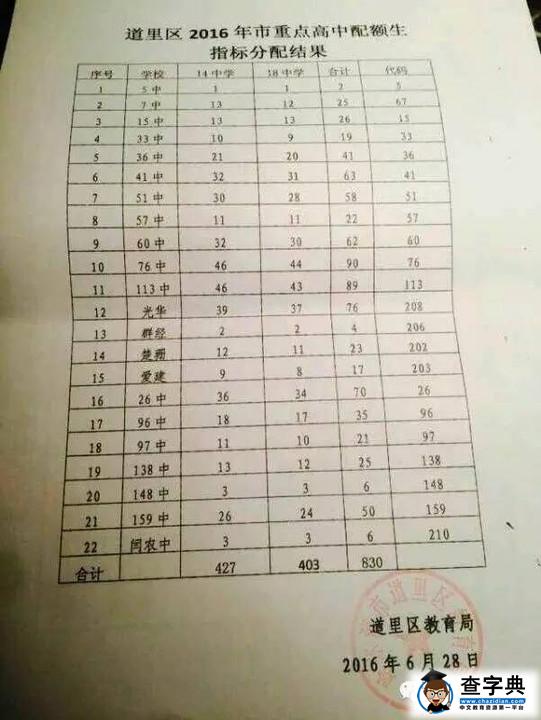 道里区 2016 年市重点高中配额生
指标分配结果
序号 学校 14 中学 18 中学 合计 代码
1 5 中 1 1 2 5
2 7 中 13 12 25 67
3 15 中 13 13 26 15
4 33 中 10 9 19 33
5 36 中 21 20 41 36
6 41 中 32 31 63 41
7 51 中 30 28 58 51
8 57 中 11 11 22 57
9 60 中 32 30 62 60
10 76 中 46 44 90 76
11 113 中 46 43 89 113
12 光华 39 37 76 208
13 群经 2 2 4 206
14 楚翘 12 11 23 202
15 爱建 9 8 17 203
16 26 中 36 34 70 26
17 96 中 18 17 35 96
18 97 中 11 10 21 97
19 138 中 13 12 25 138
20 148 中 3 3 6 148
21 159 中 26 24 50 159
22 闫农中 3 3 6 210
合计 427 403 830
道里区教育局
2016 年 6 月 28 日
查字典
www.chazidian.com
中文教育资源第一平台